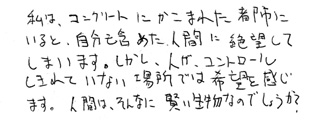 私は、コンクリートにかこまれた都市に
いると、自分も含めた人間に絶望して
しまいます。しかし、人が、コントロール
しきれていない場所では希望を感じ
ます。人間は、そんなに賢い生物なのでしょうか?